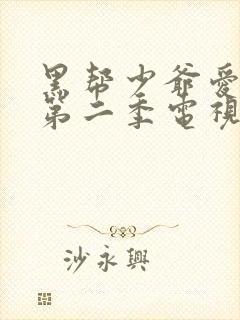 黑帮少爷愛
第二季電視
沙永興